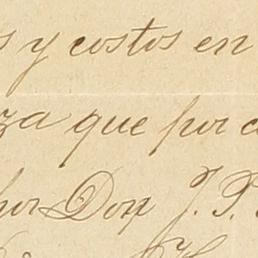 s y costos en
za que por c
por Don J. P.